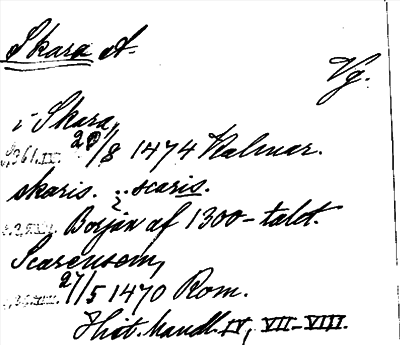 Skara A.
Vg.
i Skara,
29/8 1474 Kalmar.
skaris. scaris.
Början af 1300-talet.
Scarensem,
27/5 1470 Rom.
Hist. handl. IV, VII-VIII.